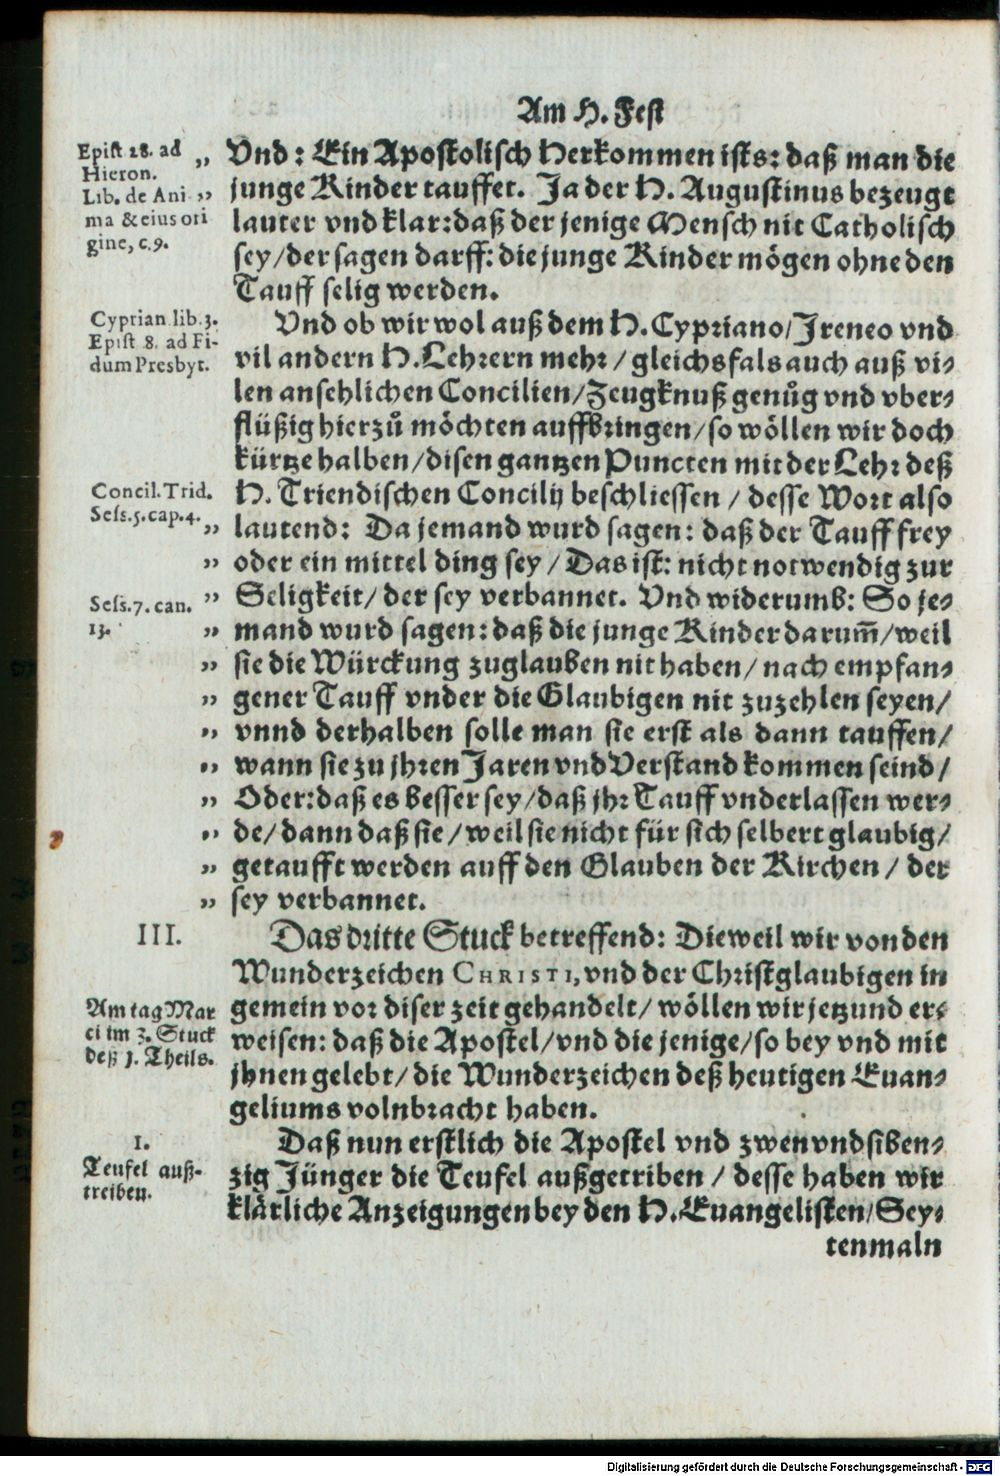 Am H. Fest
Epist 28. ad „
Hieron.
Lib. de Ani „
ma & eius ori
gine, c. 9.
Vnd: Ein Apostolisch Herkommen ists: daß man die
junge Kinder tauffet. Ja der H. Augustinus bezeugt
lauter vnd klar: daß der jenige Mensch nit Catholisch
sey/ der sagen darff: die junge Kinder mögen ohne den
Tauff selig werden.
Cyprian lib. 3.
Epist 8. ad Fi-
dum Presbyt.
Vnd ob wir wol auß dem H. Cypriano/ Ireneo vnd
vil andern H. Lehrern mehr/ gleichsfals auch auß vi-
len ansehlichen Concilien/ Zeugknuß genůg vnd vber-
flüßig hierzů möchten auffbringen/ so wöllen wir doch
kürtze halben/ disen gantzen Puncten mit der Lehr deß
Concil. Trid.
Sess. 5. cap. 4.
H. Triendischen Concilij beschliessen / desse Wort also
„ lautend: Da jemand wurd sagen: daß der Tauff frey
„ oder ein mittel ding sey / Das ist: nicht notwendig zur
Sess. 7. can.
13.
„ Seligkeit/ der sey verbannet. Vnd widerumb: So je-
„ mand wurd sagen: daß die junge Kinder darum̃/ weil
„ sie die Würckung zuglauben nit haben/ nach empfan-
„ gener Tauff vnder die Glaubigen nit zuzehlen seyen/
„ vnnd derhalben solle man sie erst als dann tauffen/
„ wann sie zu jhren Jaren vnd Verstand kommen seind/
„ Oder: daß es besser sey/ daß jhr Tauff vnderlassen wer-
„ de/ dann daß sie/ weil sie nicht für sich selbert glaubig/
„ getaufft werden auff den Glauben der Kirchen / der
„ sey verbannet.
III.
Das dritte Stuck betreffend: Dieweil wir von den
Wunderzeichen CHRISTI, vnd der Christglaubigen in
Am tag Mar
ci im 3. Stuck
deß 1. Theils.
gemein vor diser zeit gehandelt/ wöllen wir jetzund er-
weisen: daß die Apostel/ vnd die jenige/ so bey vnd mit
jhnen gelebt/ die Wunderzeichen deß heutigen Euan-
geliums volnbracht haben.
1.
Teufel auß-
treiben.
Daß nun erstlich die Apostel vnd zwen vnd siben-
zig Jünger die Teufel außgetriben / desse haben wir
klärliche Anzeigungen bey den H. Euangelisten/ Sey-
tenmaln
Digitalisierung gefördert durch die Deutsche Forschungsgemeinschaft - DFG